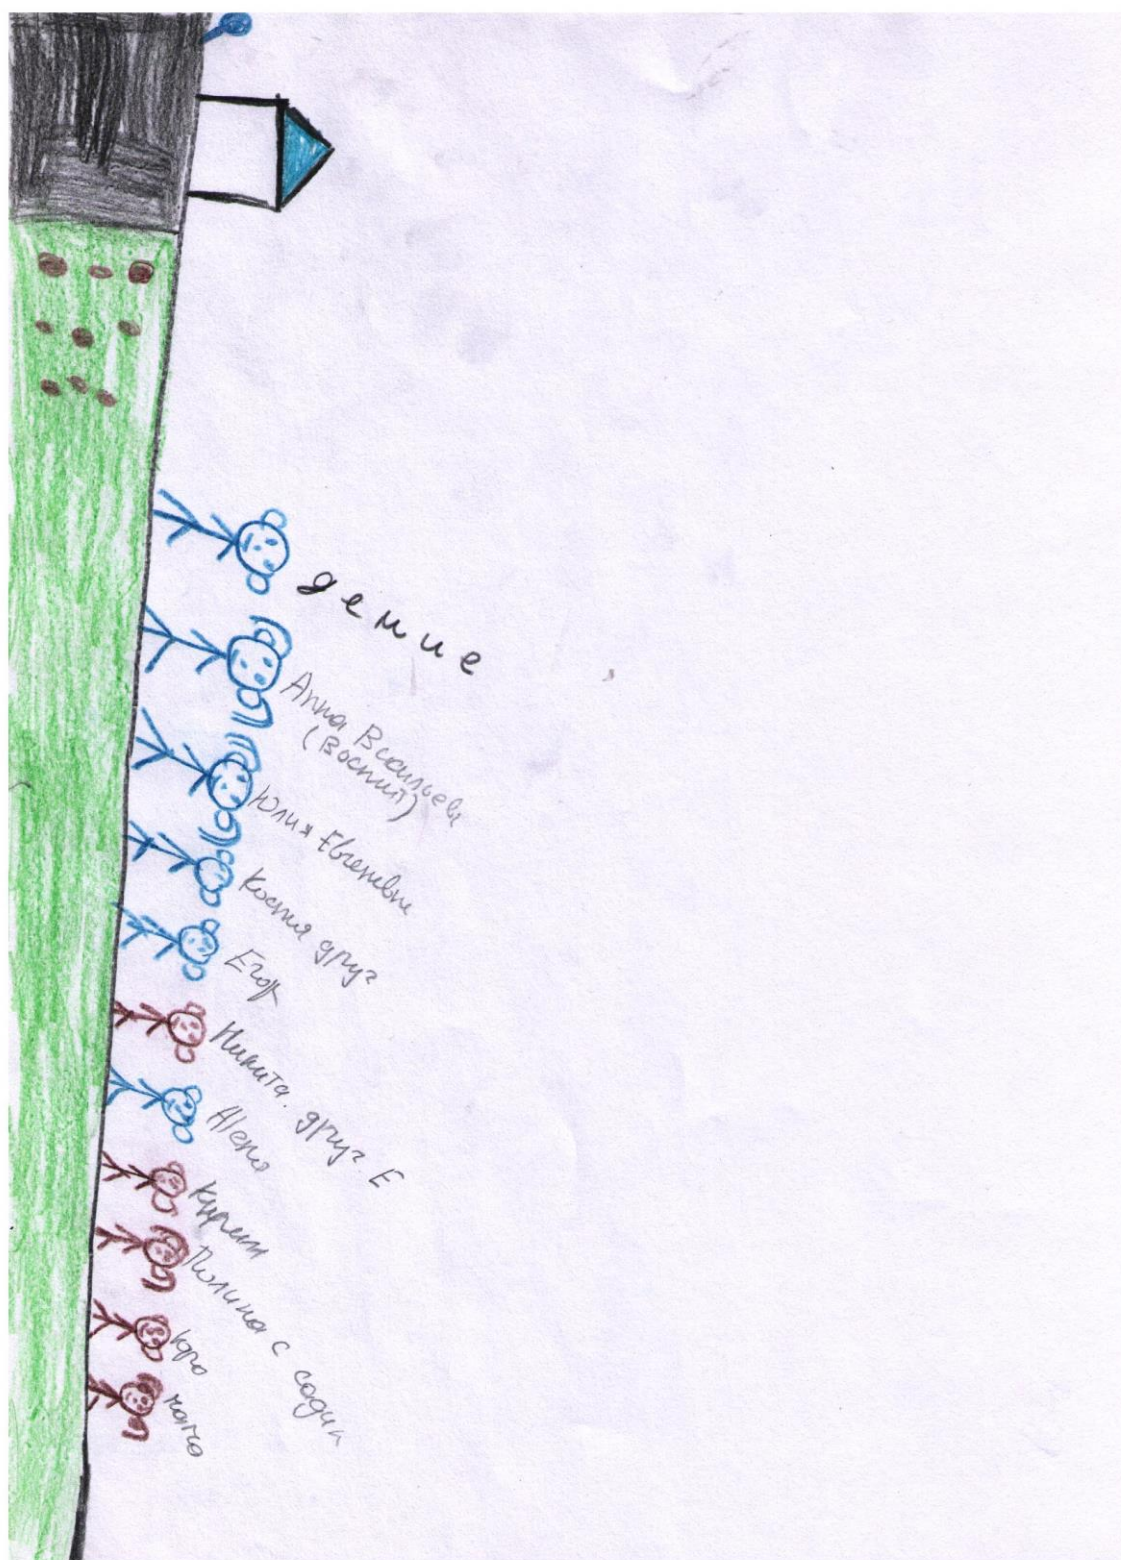 демие
Анна Васильевн
(Воспит)
Юлия Евгеневна
Костя друг
Егор
Никита. друг. Е
Алена
Полина с садик